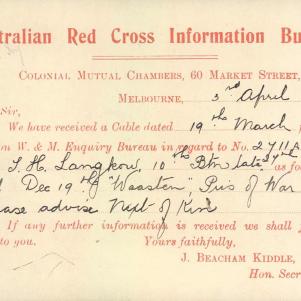 tralian Red Cross Information Bu
Colonial Mutual Chambers, 60 Market Street,
Melbourne, 3rd April
Sir,
We have received a Cable dated 19th March
on W. & M. Enquiry Bureau in regard to No. 2711A
J. H. Langkow, 10ths Btn late 27th as fo
d Dec 19th "Waasten", Pris of War
ease advise Next of Kin
If any further information is received we shall
to you. Yours faithfully,
J. Beacham Kiddle,
Hon. Secr